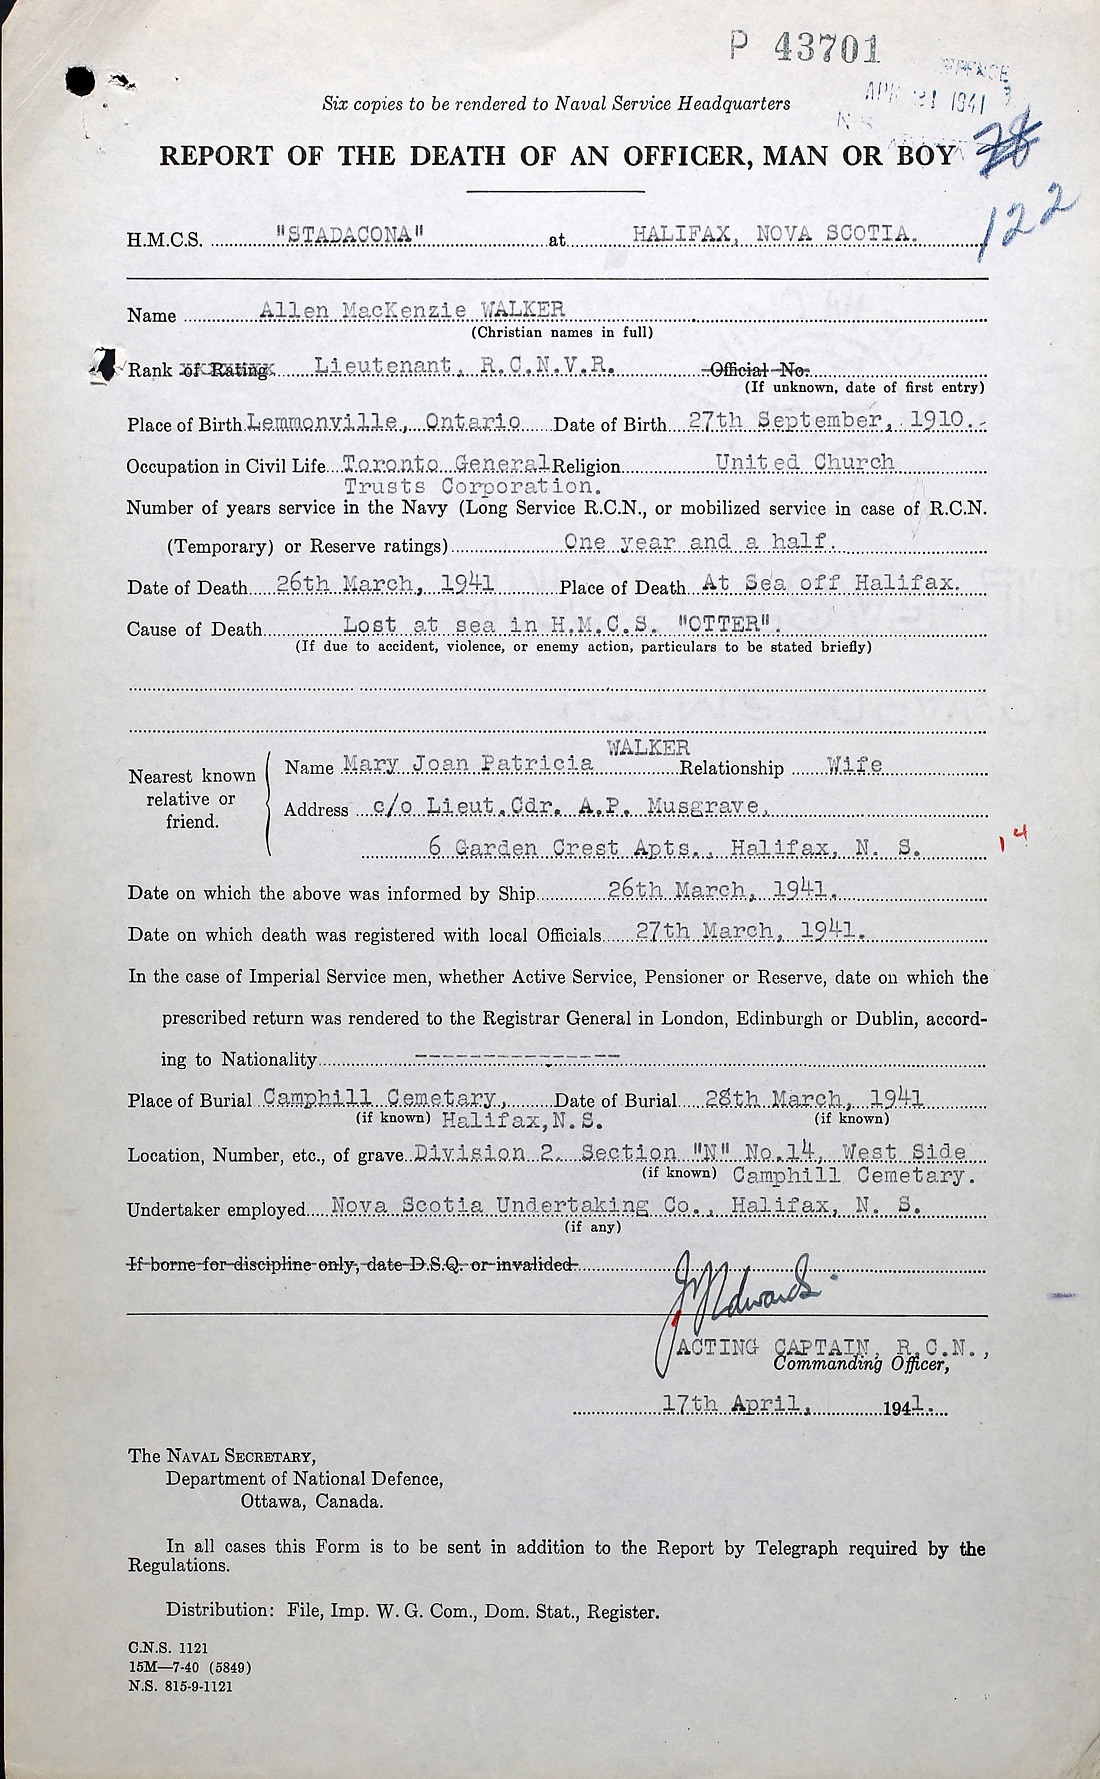 P 43701
APR 21 1941
Six copies to be rendered to Naval Service Headquarters
REPORT OF THE DEATH OF AN OFFICER, MAN OR BOY
122
H.M.C.S. "STADACONA" at HALIFAX, NOVA SCOTIA.
Name Allen MacKenzie WALKER
(Christian names in full)
Rank of Rating Lieutenant, R.C.N.V.R. Official No.
(If unknown, date of first entry)
Place of Birth Lemmonville, Ontario Date of Birth 27th September, 1910.-
Occupation in Civil Life Toronto General Religion United Church
Trusts Corporation.
Number of years service in the Navy (Long Service R.C.N., or mobilized service in case of R.C.N.
(Temporary) or Reserve ratings) One year and a half.
Date of Death 26th March, 1941 Place of Death At Sea off Halifax.
Cause of Death Lost at sea in H.M.C.S. "OTTER".
(If due to accident, violence, or enemy action, particulars to be stated briefly)
WALKER
Nearest known relative or friend.
Name Mary Joan Patricia Relationship Wife
Address c/o Lieut.Cdr. A.P. Musgrave,
6 Garden Crest Apts., Halifax, N. S. 14
Date on which the above was informed by Ship 26th March, 1941.
Date on which death was registered with local Officials 27th March, 1941.
In the case of Imperial Service men, whether Active Service, Pensioner or Reserve, date on which the
prescribed return was rendered to the Registrar General in London, Edinburgh or Dublin, accord-
ing to Nationality ----------------
Place of Burial Camphill Cemetary, Date of Burial 28th March, 1941
(if known) Halifax,N.S. (if known)
Location, Number, etc., of grave Division 2. Section "N" No.14, West Side
(if known) Camphill Cemetary.
Undertaker employed Nova Scotia Undertaking Co., Halifax, N. S.
(if any)
If borne for discipline only, date D.S.Q. or invalided
Edwards
ACTING CAPTAIN, R.C.N.,
Commanding Officer,
17th April, 1941.
The NAVAL SECRETARY,
Department of National Defence,
Ottawa, Canada.
In all cases this Form is to be sent in addition to the Report by Telegraph required by the
Regulations.
Distribution: File, Imp. W. G. Com., Dom. Stat., Register.
C.N.S. 1121
15M—7-40 (5849)
N.S. 815-9-1121